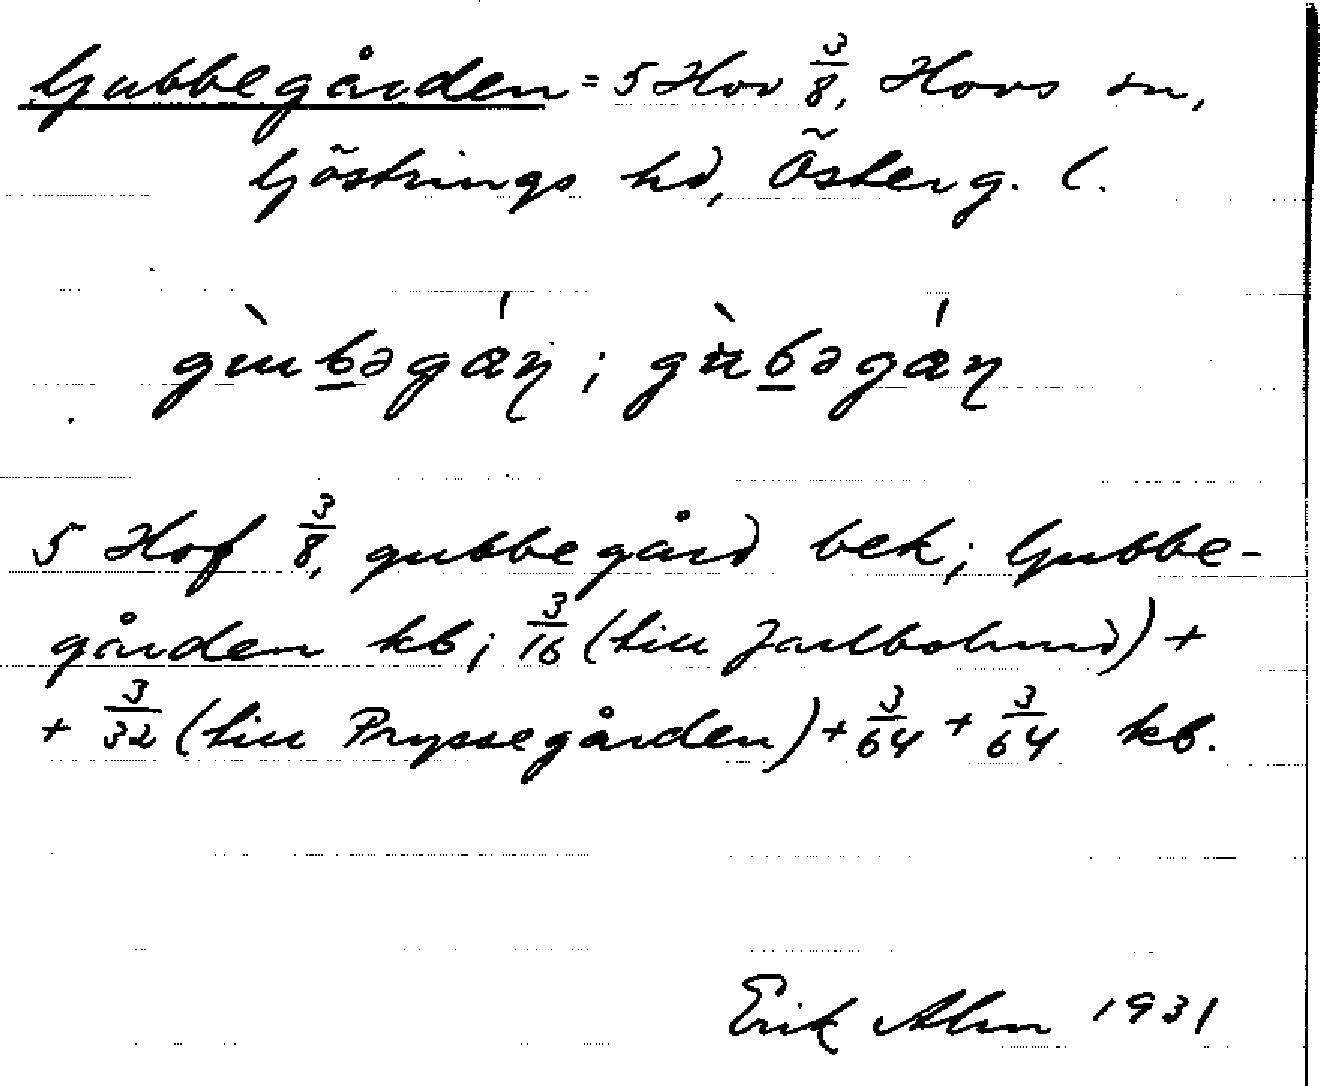 Gubbegården = 5 Hov 3/8, Hovs sn,
Göstrings hd, Österg. l.
5 Hof 3/8, gubbegård bek; Gubbe-
gården kb; 3/16 (till Jarlbolund) +
+ 3/32 (till Pryssegården) + 3/64 + 3/64 kb.
Erik Alm 1931